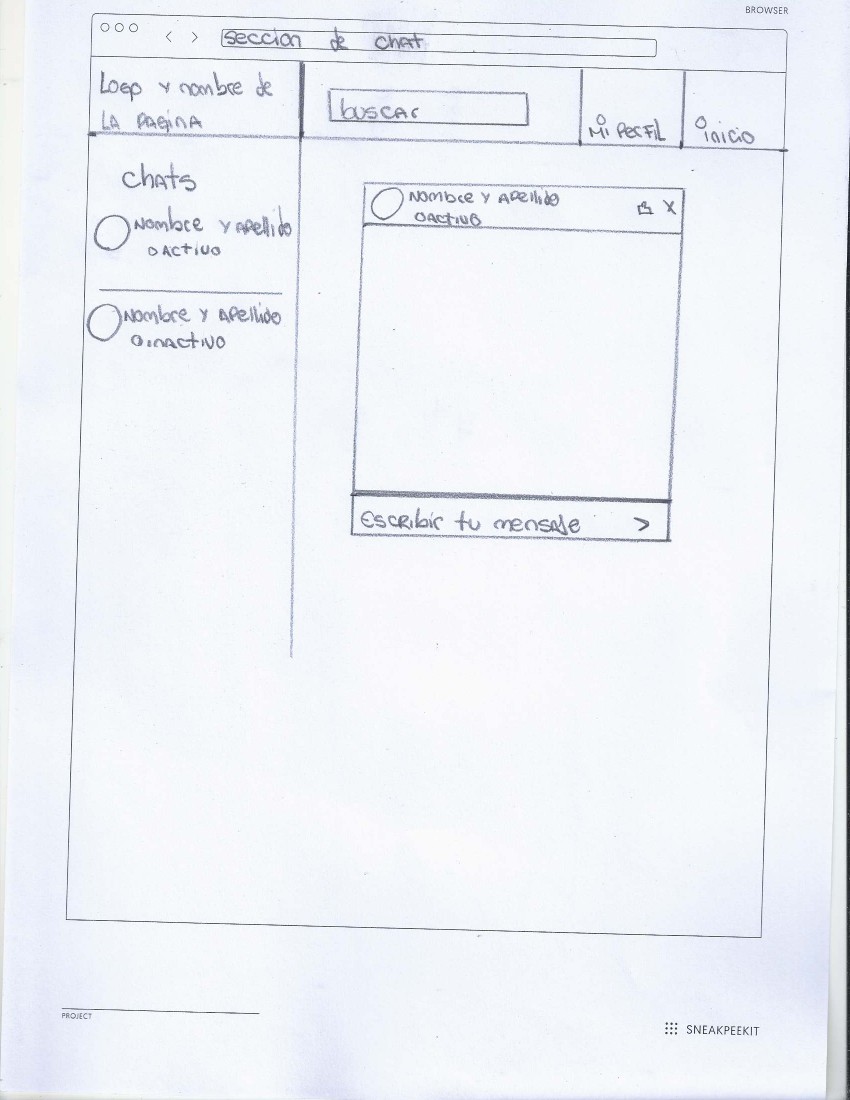 BROWSER
seccion de chat
Logo y nombre de
LA PAGINA
buscar
Mi Perfil
inicio
chats
Nombre y Apellido
Activo
Nombre y Apellido
inactivo
Nombre y Apellido
Activo
X
Escribir tu mensaje >
PROJECT
SNEAKPEEKIT